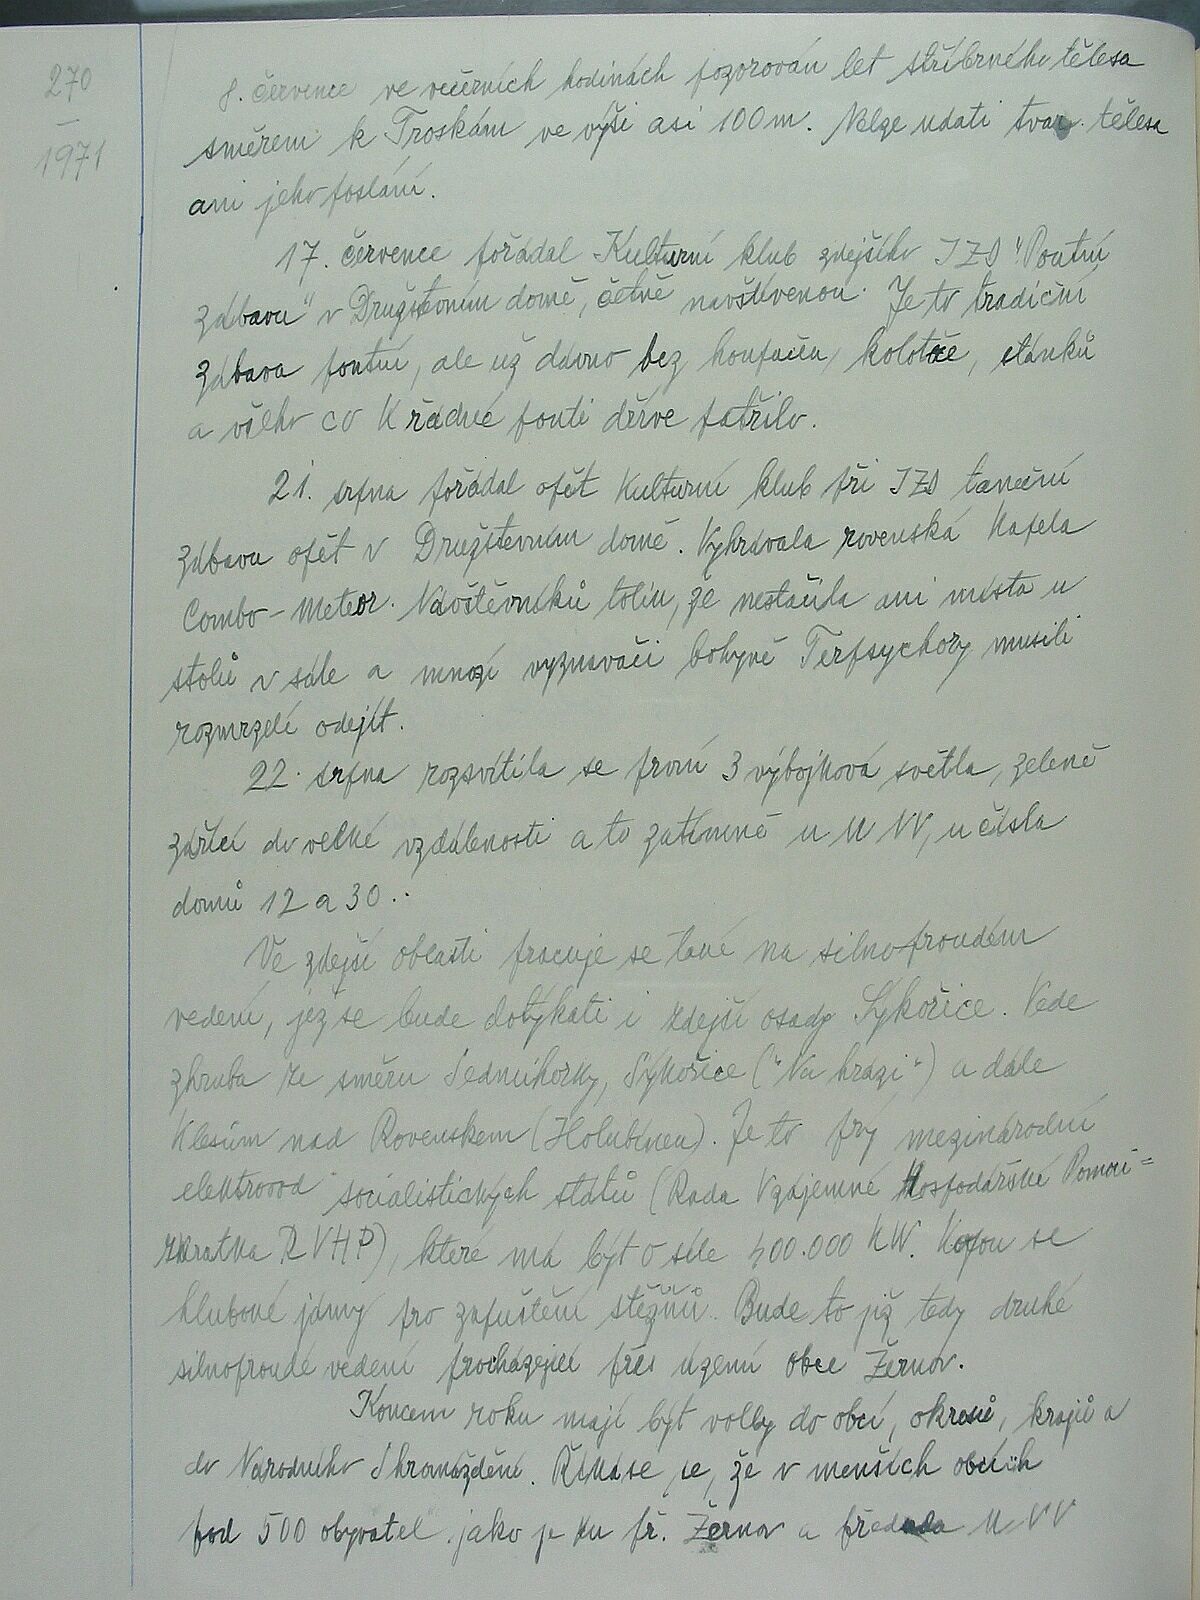 270
—
1971
8. července ve večerních hodinách pozorován let stříbrného tělesa
směrem k Troskám ve výši asi 100 m. Nelze udati tvar tělesa
ani jeho poslání.
17. července pořádal Kulturní klub zdejšího JZD "Poutní
zábavu" v Družstevním domě, četně navštívenou. Je to tradiční
zábava poutní, ale už dávno bez houpaček, kolotoče, stánků
a všeho co k řádné pouti dříve patřilo.
21. srpna pořádal opět Kulturní klub při JZD taneční
zábavu opět v Družstevním domě. Vyhrávala rovenská kapela
Combo-Meteor. Návštěvníků tolik, že nestačila ani místa u
stolů v sále a mnozí vyznavači bohyně Terpsychory musili
rozmrzelí odejít.
22. srpna rozsvítila se první 3 výbojková světla, zeleně
zářící do velké vzdálenosti a to zatímně u MNV, u čísla
domů 12 a 30.
Ve zdejší oblasti pracuje se také na silnoproudém
vedení, jež se bude dotýkati i zdejší osady Sýkořice. Vede
zhruba ze směru Sedmihorky, Sýkořice ("Na hrázi") a dále
k lesům nad Rovenskem (Holubinea). Je to prý mezinárodní
elektrovod socialistických států (Rada Vzájemné Hospodářské Pomoci =
zkratka RVHP), které má být o síle 400.000 KW. Kopou se
hlubové jámy pro zapuštění stěžňů. Bude to již tedy druhé
silnoproudé vedení procházející přes území obce Žernov.
Koncem roku mají být volby do obcí, okresů, krajů a
do Národního Shromáždění. Říká se, že v menších obcích
pod 500 obyvatel jako je ku př. Žernov a předseda MNV